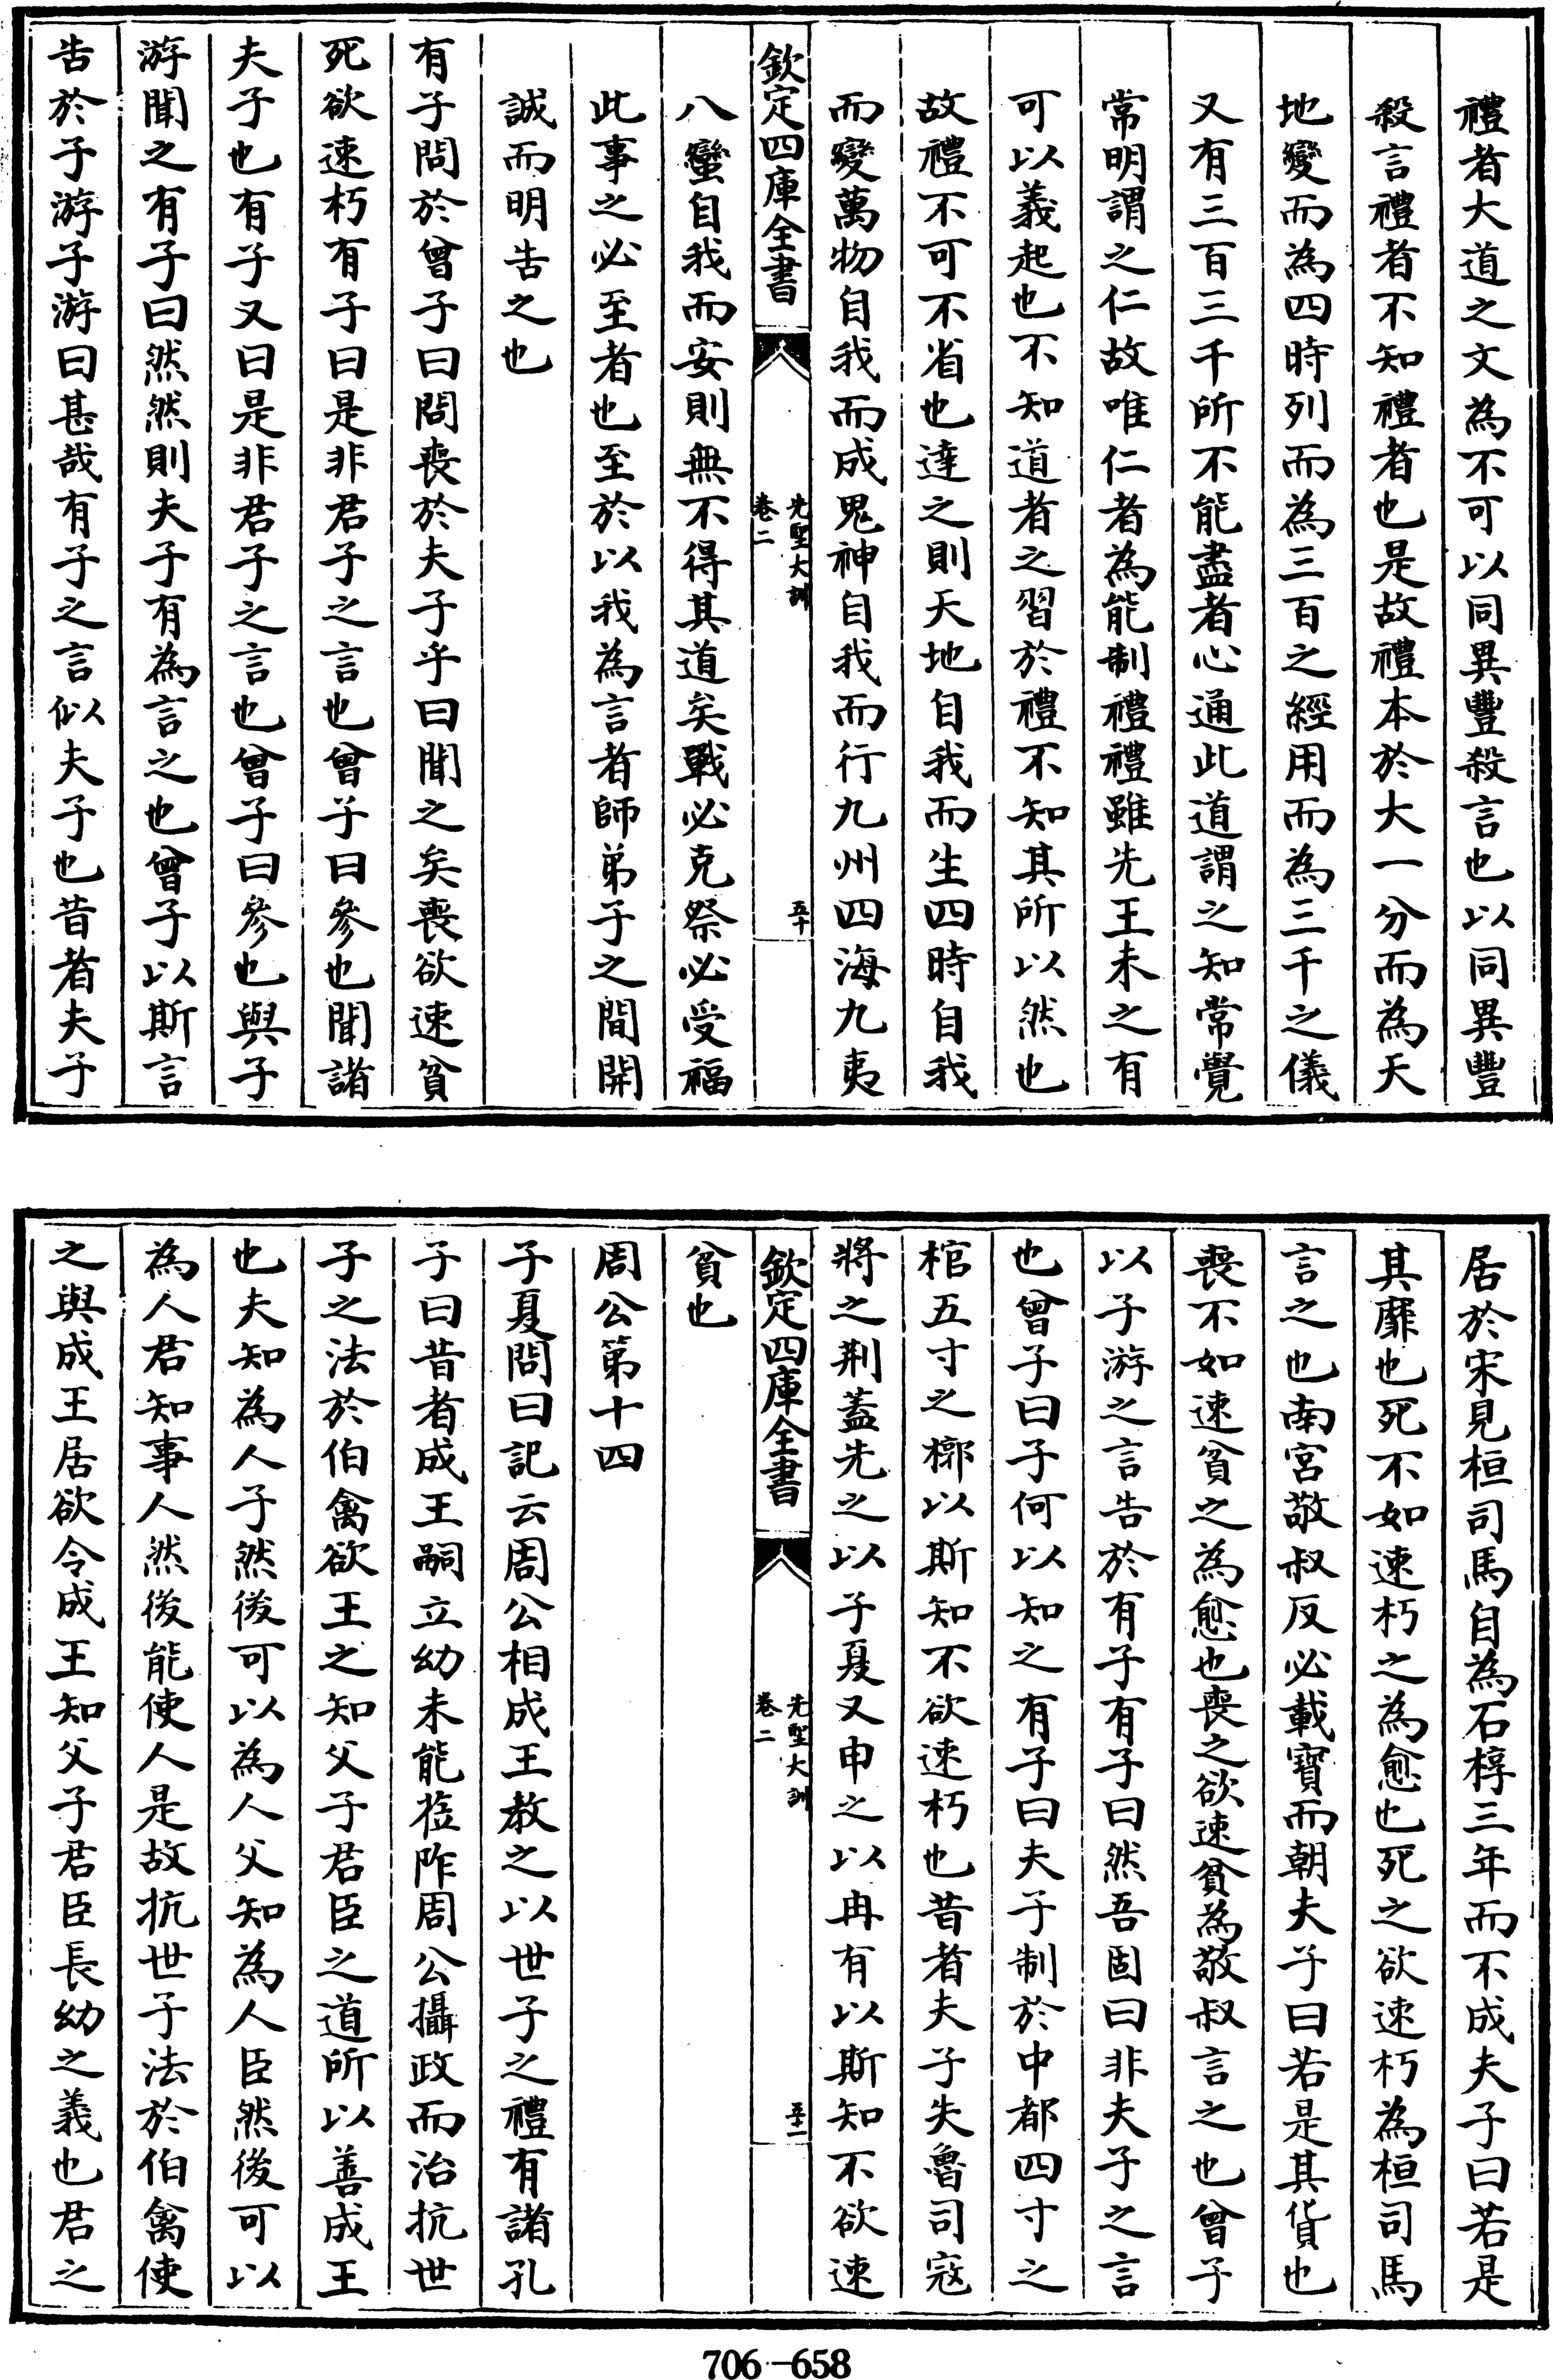 禮者大道之文為不可以同異豐殺言也以同異豐
殺言禮者不知禮者也是故禮本於大一分而為天
地變而為四時列而為三百之經用而為三千之儀
又有三百三千所不能盡者心通此道謂之知常覺
常明謂之仁故唯仁者為能制禮禮雖先王未之有
可以義起也不知道者之習於禮不知其所以然也
故禮不可不省也達之則天地自我而生四時自我
而變萬物自我而成鬼神自我而行九州四海九夷
欽定四庫全書
先聖大訓
卷二
五十
八蠻自我而安則無不得其道矣戰必克祭必受福
此事之必至者也至於以我為言者師弟子之間開
誠而明告之也
有子問於曾子曰問喪於夫子乎曰聞之矣喪欲速貧
死欲速朽有子曰是非君子之言也曾子曰參也聞諸
夫子也有子又曰是非君子之言也曾子曰參也與子
游聞之有子曰然然則夫子有為言之也曾子以斯言
告於子游子游曰甚哉有子之言似夫子也昔者夫子
居於宋見桓司馬自為石椁三年而不成夫子曰若是
其靡也死不如速朽之為愈也死之欲速朽為桓司馬
言之也南宮敬叔反必載寶而朝夫子曰若是其貨也
喪不如速貧之為愈也喪之欲速貧為敬叔言之也曾子
以子游之言告於有子有子曰然吾固曰非夫子之言
也曾子曰子何以知之有子曰夫子制於中都四寸之
棺五寸之槨以斯知不欲速朽也昔者夫子失魯司寇
將之荆蓋先之以子夏又申之以冉有以斯知不欲速
欽定四庫全書
先聖大訓
卷二
五十一
貧也
周公第十四
子夏問曰記云周公相成王教之以世子之禮有諸孔
子曰昔者成王嗣立幼未能莅阼周公攝政而治抗世
子之法於伯禽欲王之知父子君臣之道所以善成王
也夫知為人子然後可以為人父知為人臣然後可以
為人君知事人然後能使人是故抗世子法於伯禽使
之與成王居欲令成王知父子君臣長幼之義也君之
706-658